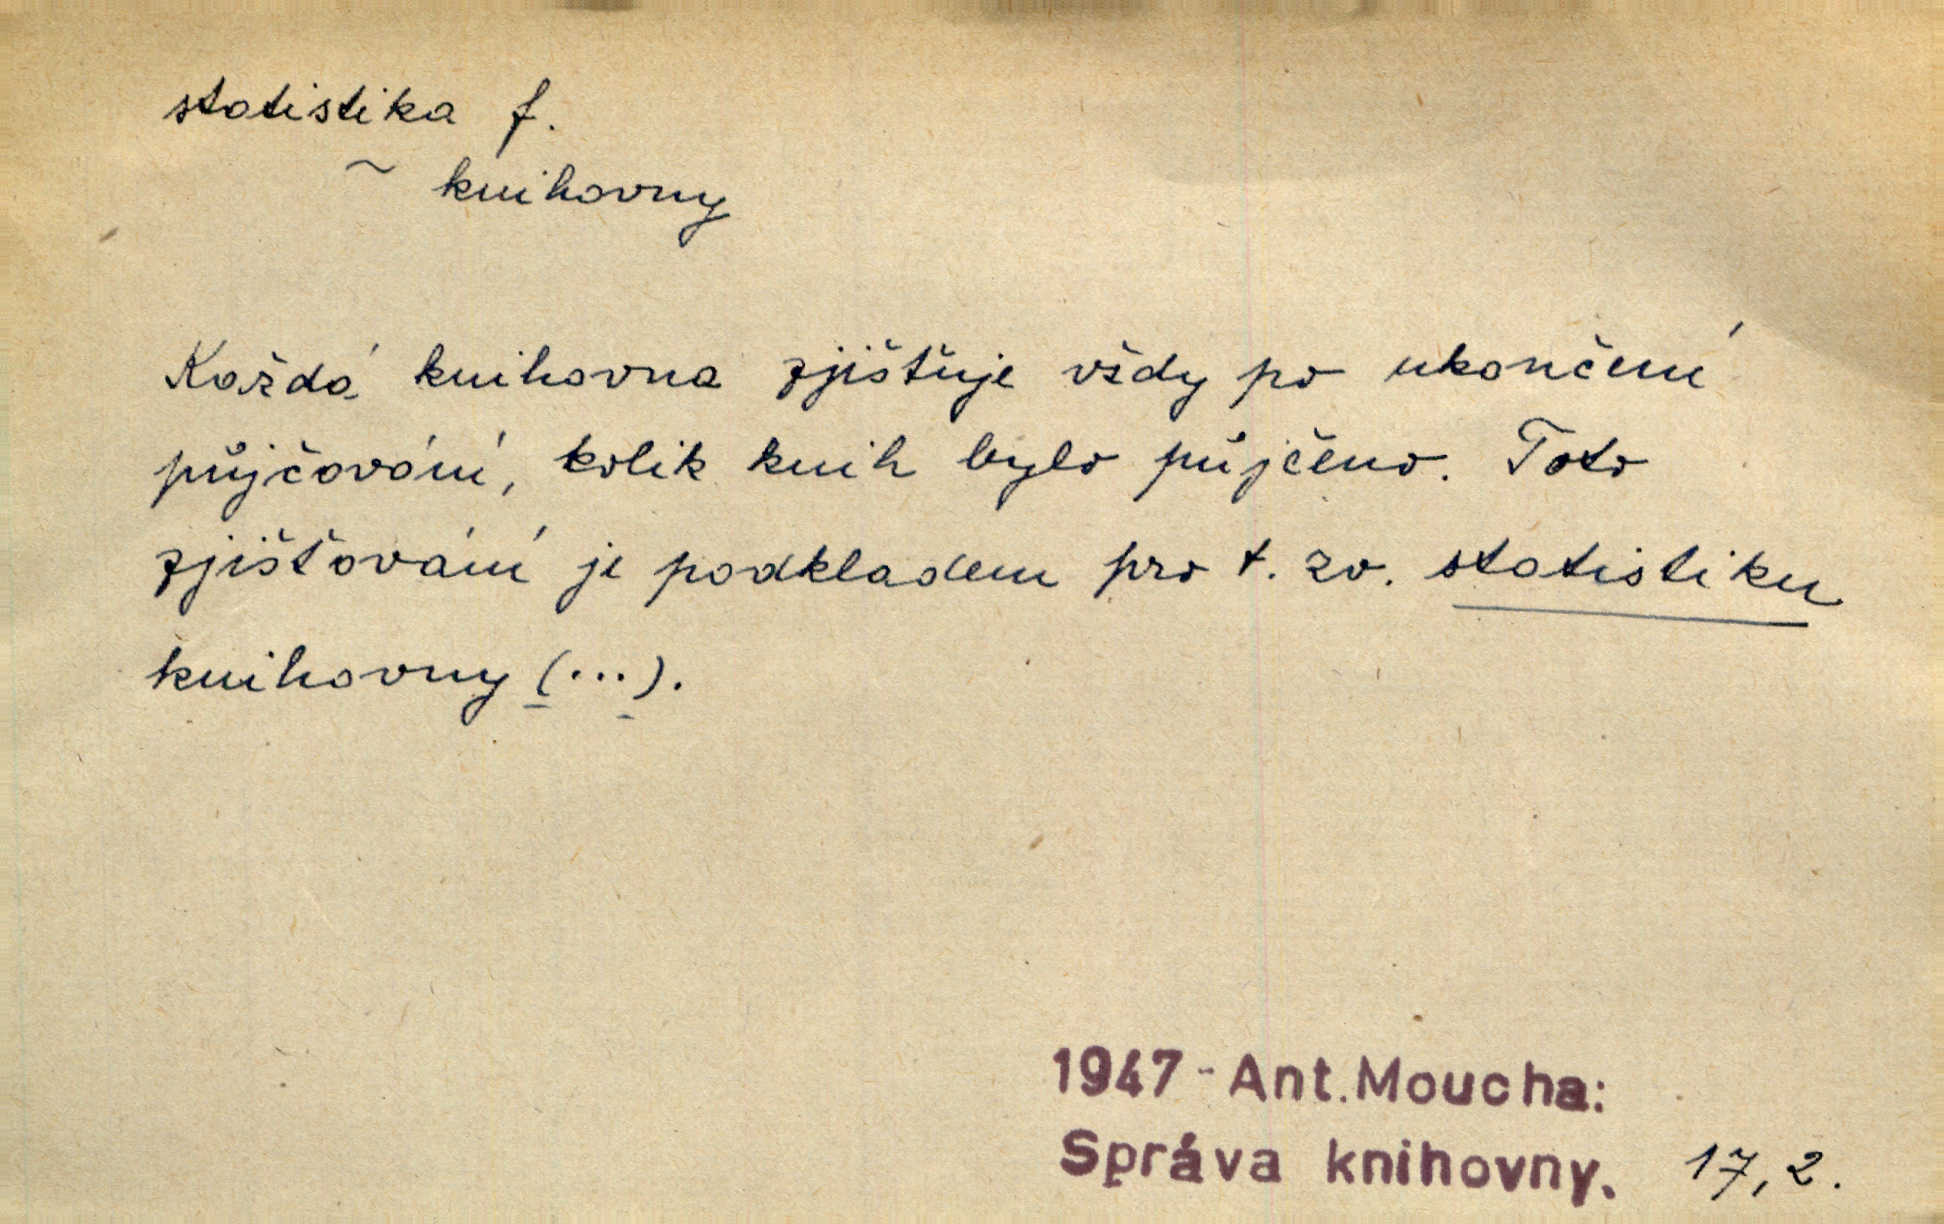 statistika f.
~ knihovny
Každá knihovna zjišťuje vždy po ukončení
půjčování, kolik knih bylo půjčeno. Toto
zjišťování je podkladem pro t. zv. statistiku
knihovny (...).
1947 - Ant. Moucha:
Správa knihovny. 17, 2.